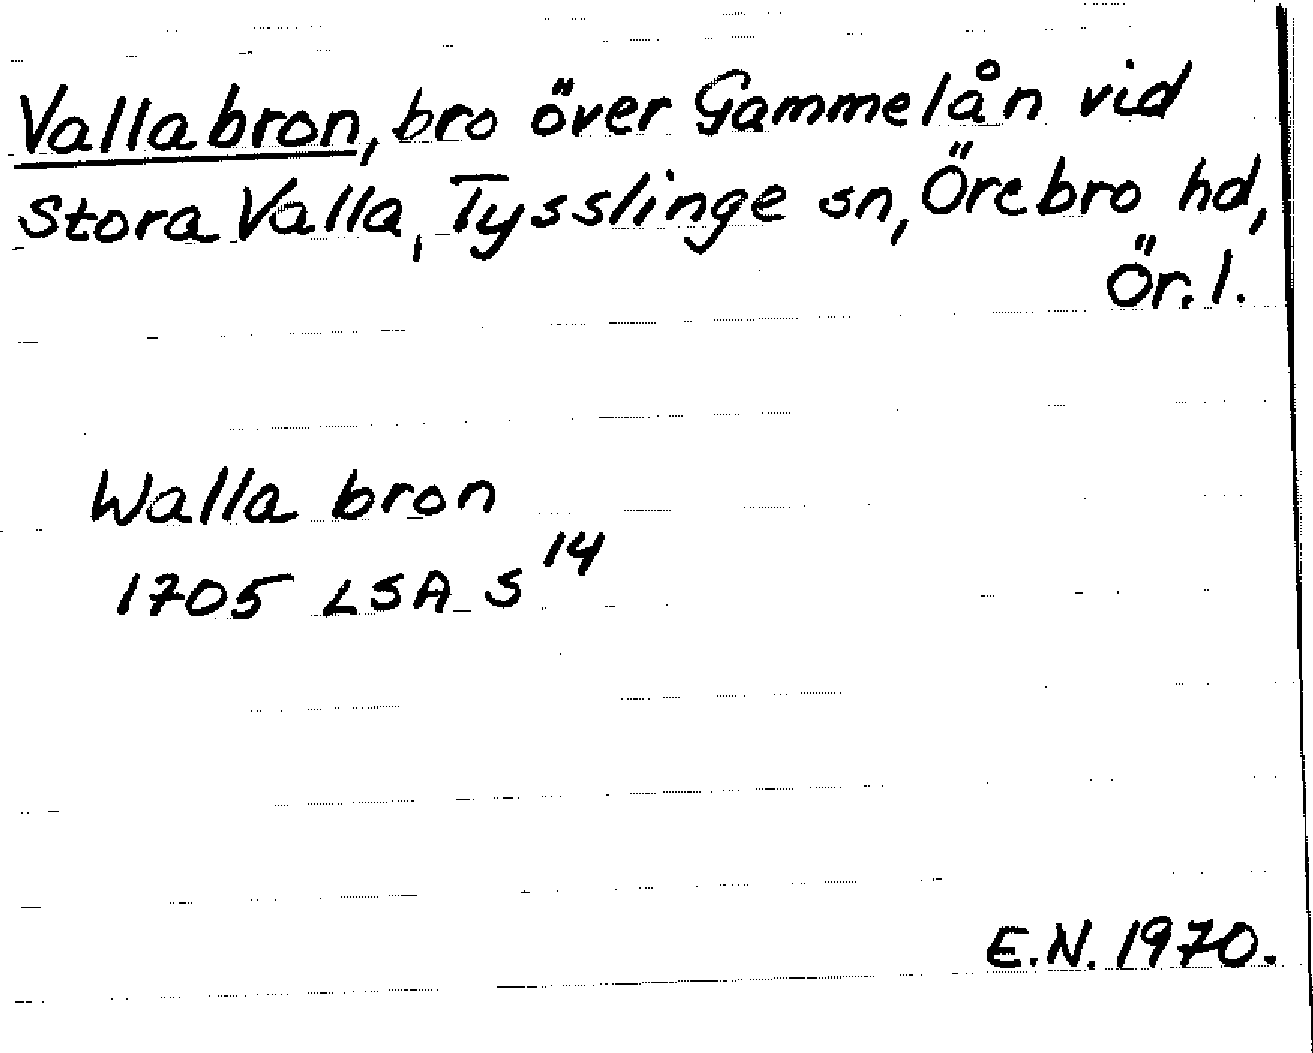 Vallabron, bro över Gammelån vid
Stora Valla, Tysslinge sn, Örebro hd,
Ör. l.
Walla bron
1705 LSA S 14
E.N. 1970.